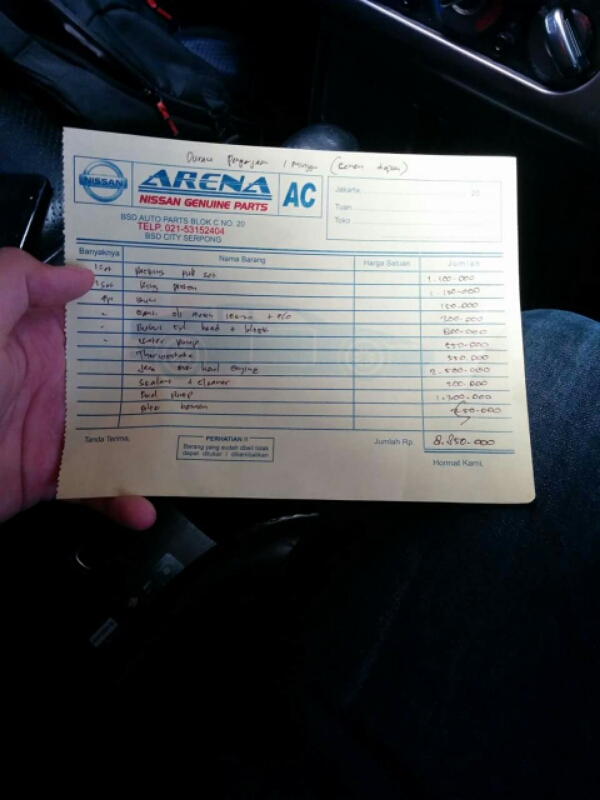 1 Minggu
NISSAN
ARENA
NISSAN GENUINE PARTS
AC
BSD AUTO PARTS BLOK C NO. 20
TELP. 021-53152404
BSD CITY SERPONG
Jakarta, 20
Tuan
Toko
Banyaknya Nama Barang Harga Satuan Jumlah
1 Set Packing full set 1.100.000
1 Set Ring piston
150.000
200.000
head + block 800.000
Water Pump 550.000
Thermostat 350.000
Jasa over haul engine 2.500.000
Sealant + cleaner 200.000
Fuel Pump 1.200.000
Tanda Terima,
PERHATIAN !!
Barang yang sudah dibeli tidak
dapat ditukar / dikembalikan
Jumlah Rp. 8.850.000
Hormat Kami,